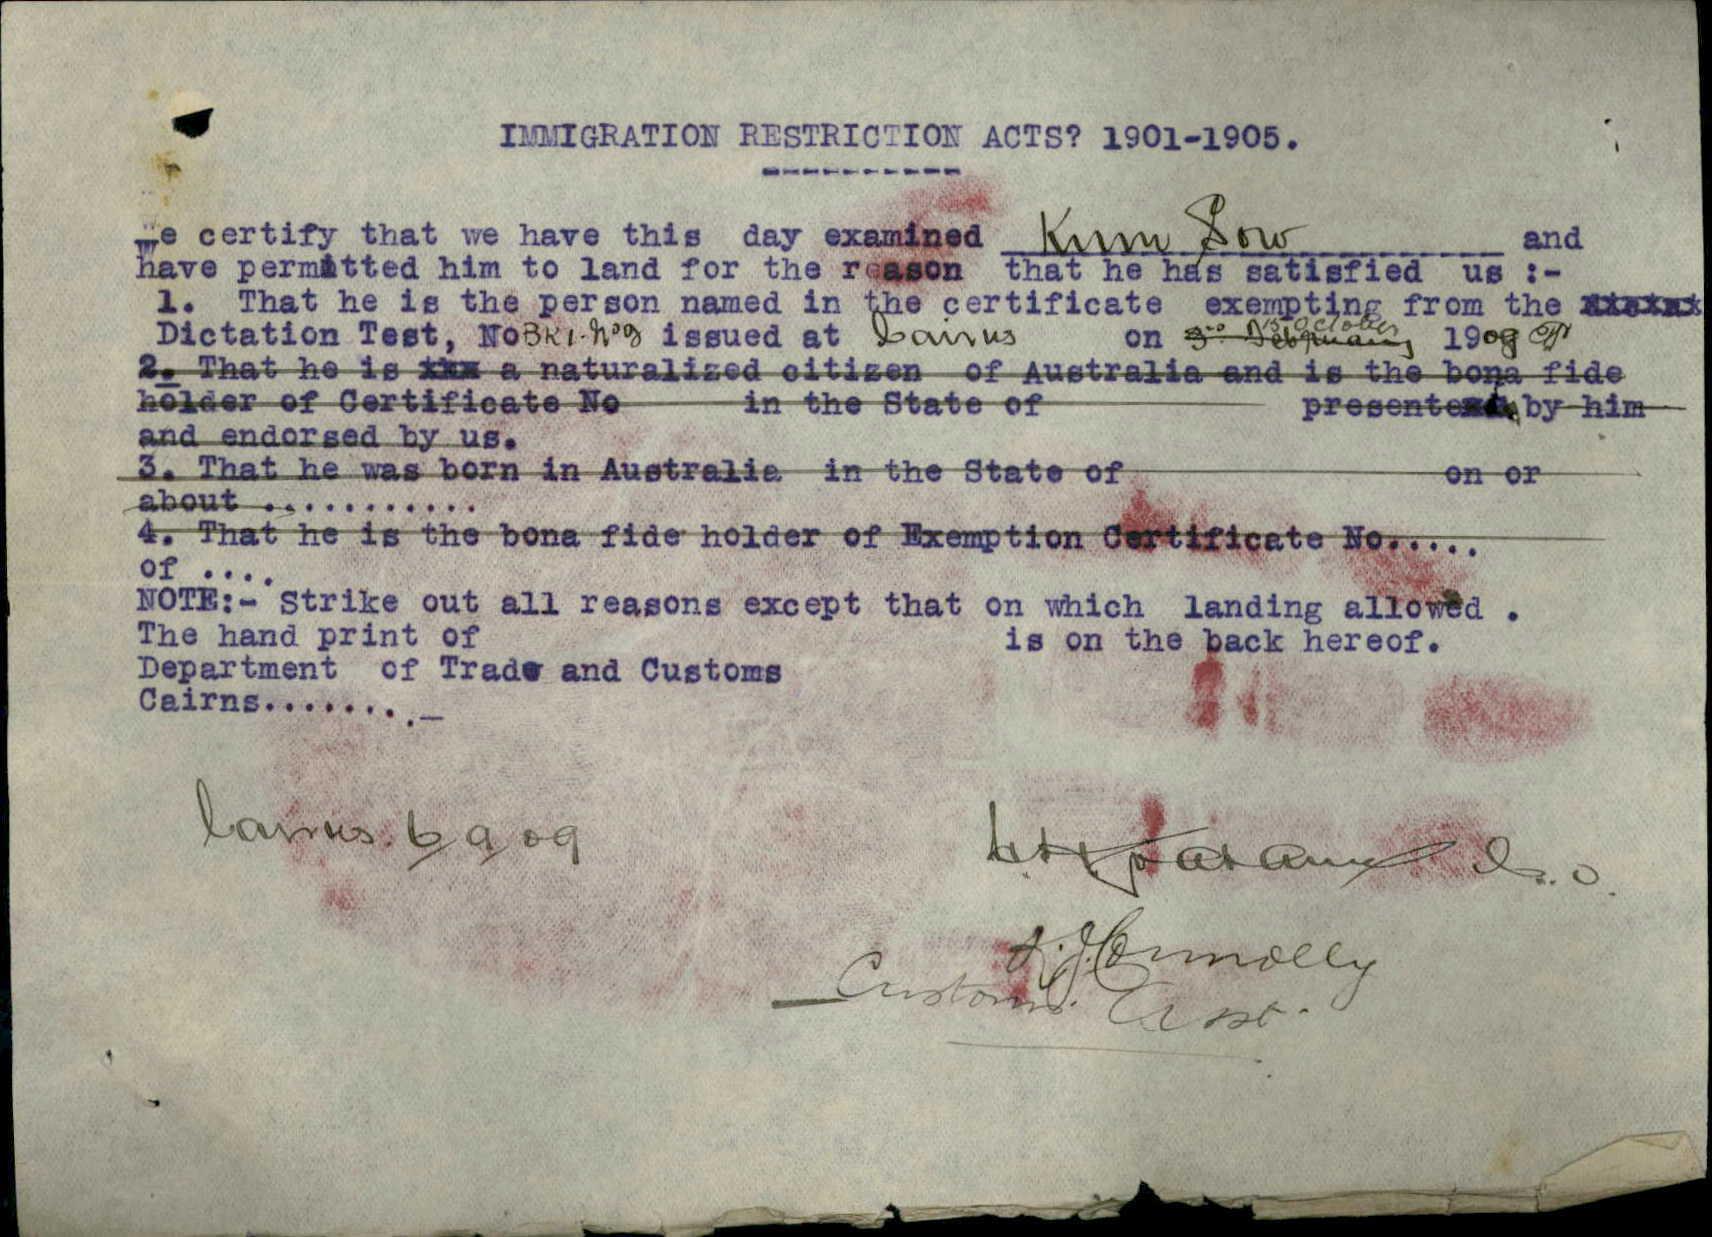 IMMIGRATION RESTRICTION ACTS? 1901-1905.
We certify that we have this day examined Kum Sow and
have permitted him to land for the reason that he has satisfied us :-
1. That he is the person named in the certificate exempting from the
Dictation Test, No BK1. No9 issued at Cairns on 3rd February October 1908
2. That he is xxx a naturalized citizen of Australia and is the bona fide
holder of Certificate No in the State of presented by him
and endorsed by us.
3. That he was born in Australia in the State of on or
about ...........
4. That he is the bona fide holder of Exemption Certificate No.....
of ....
NOTE:- Strike out all reasons except that on which landing allowed .
The hand print of is on the back hereof.
Department of Trade and Customs
Cairns........_
Cairns. 6/9/09
J. Connolly
Customs. Asst.